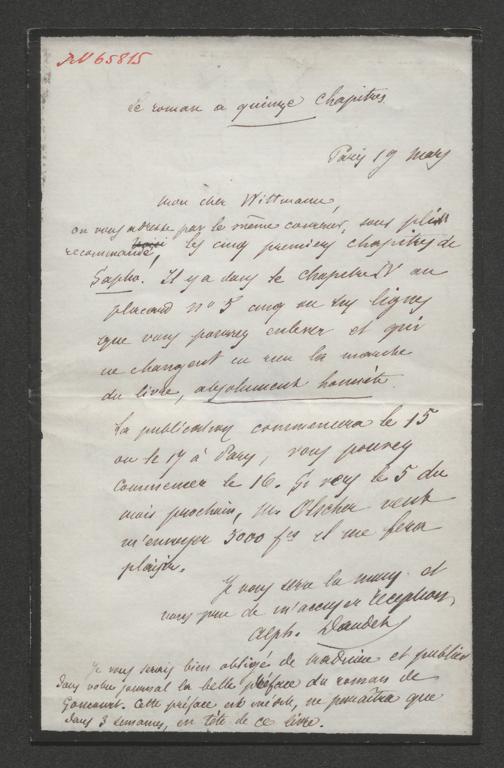 le roman a quinze chapitres.
Paris 19 mars
Mon cher Wittmann,
on vous adresse par le même courrier, sous pli
recommandé, les cinq premiers chapitres de
Sapho. Il y a dans le chapitre IV au
placard n° 5 cinq ou six lignes
que vous pourrez enlever et qui
ne changent en rien la marche
du livre, absolument honnête.
La publication commencera le 15
ou le 17 à Paris, vous pouvez
commencer le 16. Si vers le 5 du
mois prochain, M. veut
m'envoyer 3000 fcs il me fera
plaisir.
Je vous serre la main et
vous prie de m'accuser réception
Alph. Daudet
Je vous serais bien obligé de traduire et publier
dans votre journal la belle préface du roman de
Goncourt. Cette préface est inédite, ne paraîtra que
dans 3 semaines, en tête de ce livre.